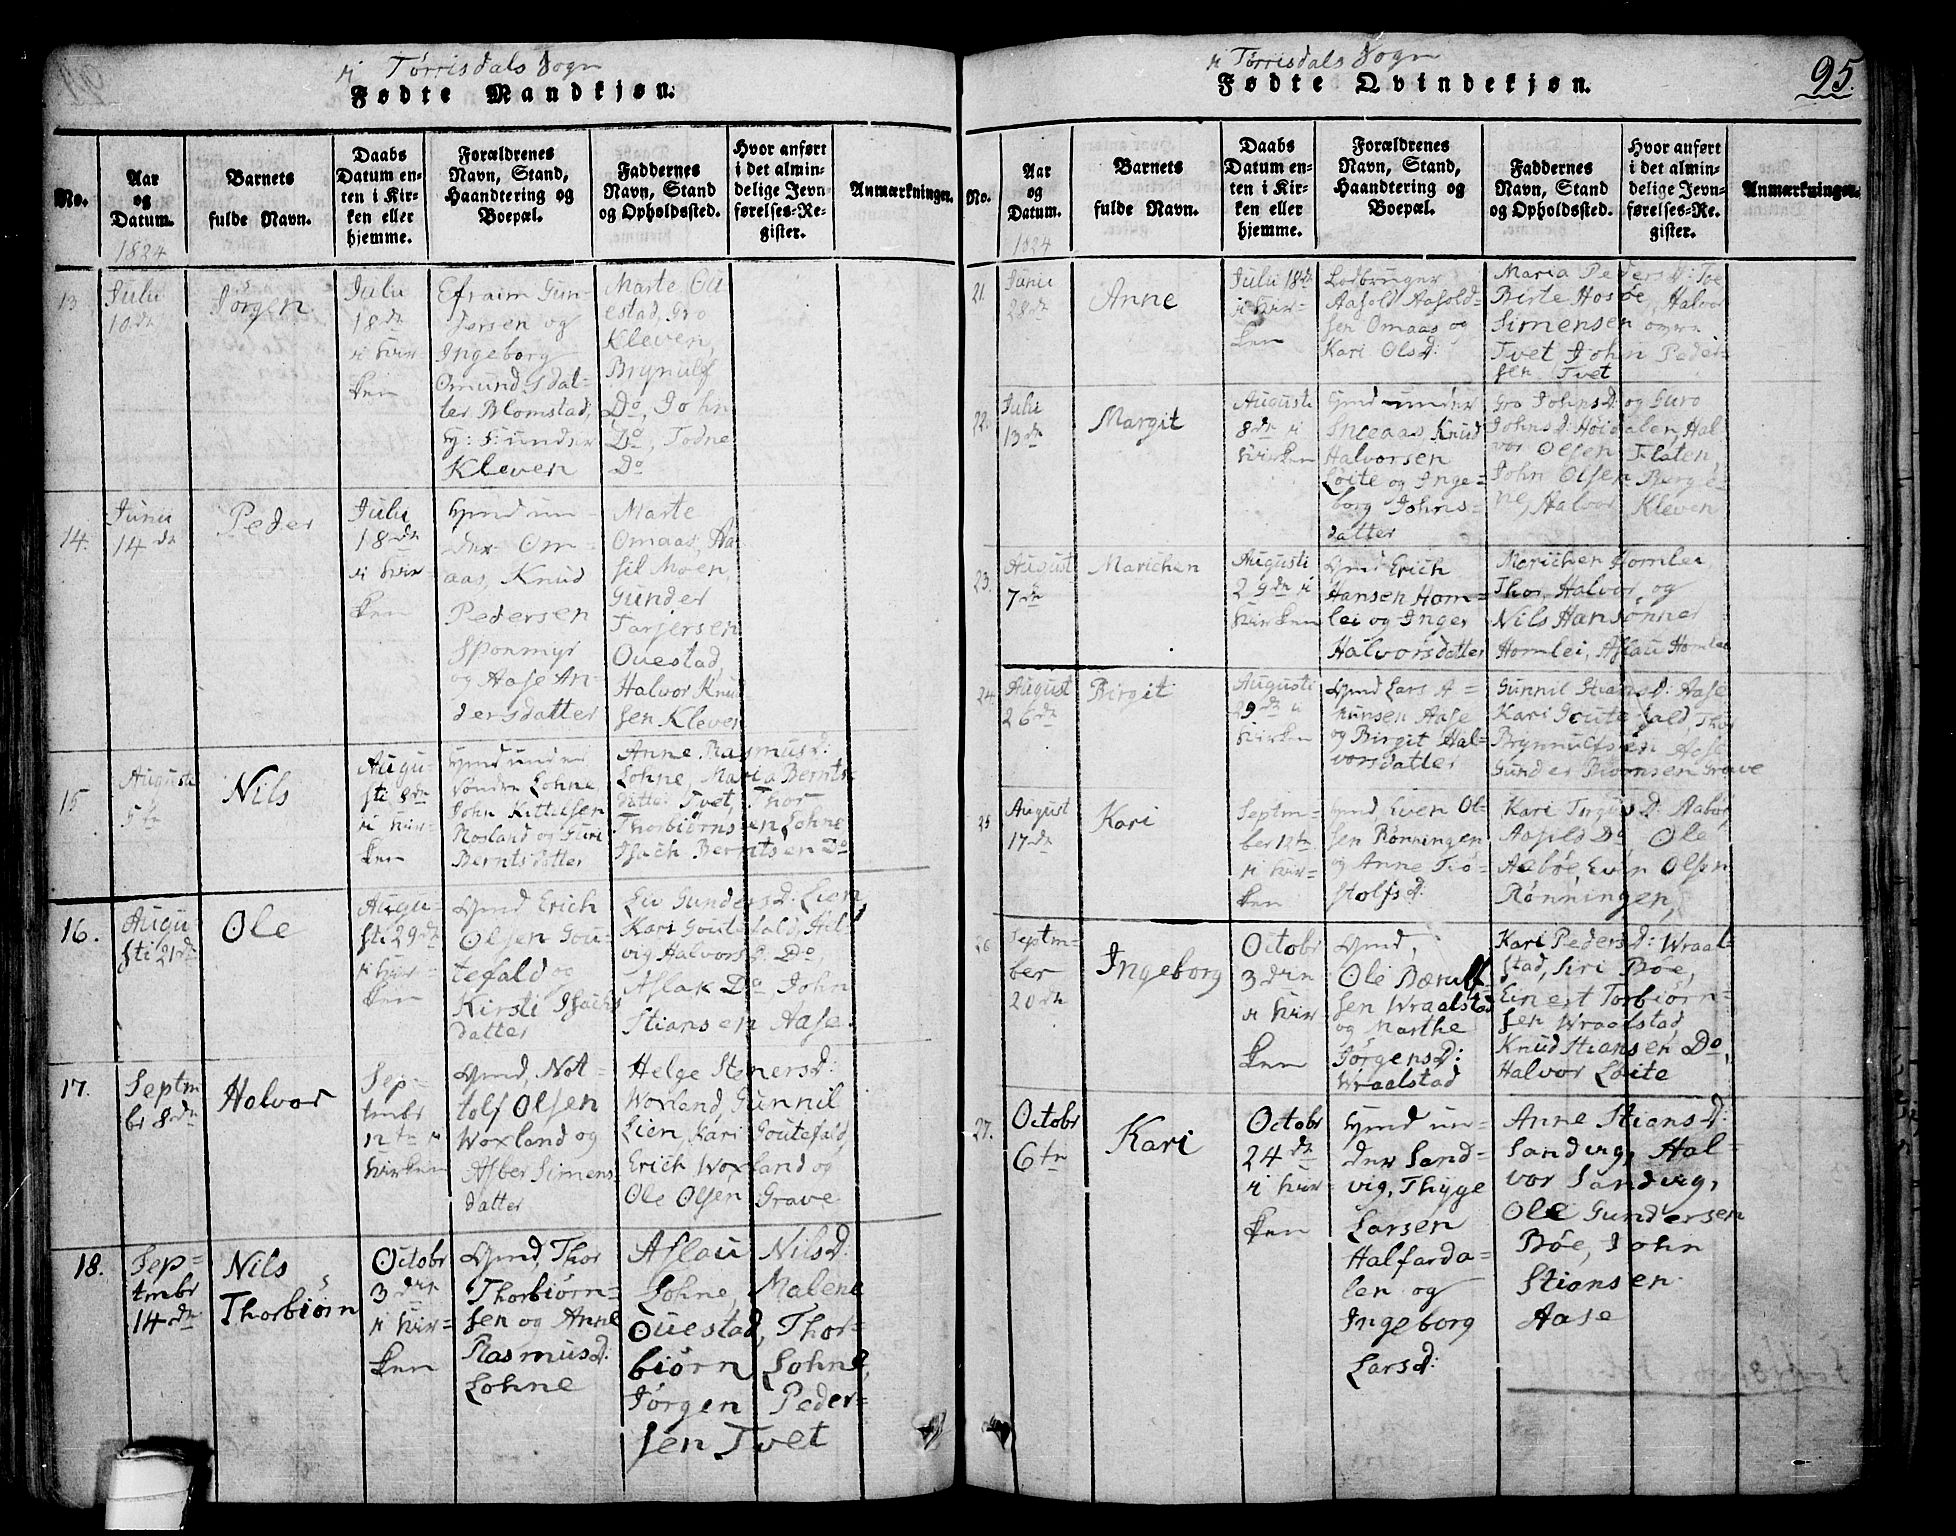 i Tørrisdals Sogn
Fødte Mandkjøn.
No.
Aar og Datum.
1824
Barnets fulde Navn.
Daabs Datum enten i Kirken eller hjemme.
Forældrenes Navn, Stand, Haandtering og Boepæl.
Faddernes Navn, Stand og Opholdssted.
Hvor anført i det almindelige Jevnførelses-Register.
Anmærkninger.
13
Julii
10de
Jörgen
Julii
18de
i Kir-
ken
Efraim Gun-
dersen og
Ingeborg
Omundsdat-
ter Blomstad,
Kleven
Marte Ou
estad, Gro
Kleven,
Brynulf
Do, John
Do, Todne
Do
14.
Junii
14de
Peder
Julii
18de
i Kir-
ken
Om-
aas, Knud
Pedersen
Sponmyr
og Aase An-
dersdatter
Marte
Omaas, Aa
sil Moen,
Gunder
Tarjersen
Ouestad,
Halvor Knu
sen Kleven
15
Augusti
5te
Nils
Augu-
sti 8de
i Kir-
ken
Söndre Lohne
John Kittilsen
Rosland og Guri
Berntsdatter
Anne Rasmusd:
Lohne, Maria Bernts-
datter Tvet, Thor
Thorbiörnsen Lohne
Isach Berntsen Do
16.
Augu
sti 21de
Ole
Augu-
sti 29de
i Kir-
ken
Gmd Erich
Olsen Gou-
tefald og
Kirsti Isachs
datter
Liv Gundersd. Lien,
Kari Goutefald, Hel-
vig Halvorsd: Do,
Aslak Do, John
Stiansen Aase.
17.
Septm
br 8de
Halvor
Sep-
tmbr
12te i
Kirken
Gmd, Not-
tolf Olsen
Woxland og
Asber Simens
datter
Helge Stenersd:
Woxland, Gunnil
Lien, Kari Goutefald,
Erich Woxland og
Ole Olsen Grave.
18.
Sep-
tmbr
14de
Nils
Thorbiörn
Octobr
3die
i Kir-
ken
Gmd, Thor
Thorbiörn-
sen og Anne
Rasmusd:
Lohne
Aslau Nilsd:
Lohne, Malene
Ouestad, Thor-
biörn Lohne,
Jörgen Peder-
sen Tvet
i Tørrisdals Sogn
95.
Fødte Qvindekjøn.
No.
Aar og Datum.
1824
Barnets fulde Navn.
Daabs Datum enten i Kirken eller hjemme.
Forældrenes Navn, Stand, Haandtering og Boepæl.
Faddernes Navn, Stand og Opholdssted.
Hvor anført i det almindelige Jevnførelses-Register.
Anmærkninger.
21.
Junii
28de
Anne
Julii 18de
i Kir-
ken
Lodbruger
Aasold Aasold-
sen Omaas og
Kari Olsd:
Maria Pedersd: Tve
Birte Hosöe, Halvor
Simensen
Tvet John Peder-
sen Tvet
22.
Julii
13de
Margit
Augusti
8de i
Kirken
Gmd under
Sneaas, Knud
Halvorsen
Löite og Inge-
borg Johns-
datter
Gro Johnsd og Guro
Johnsd: Höidalen, Hal-
vor Olsen Flaten,
John Olsen
Halvor Kleven
23.
August
7de
Marichen
Augusti
29de i
Kirken
Gmd Erich
Hansen Hom-
lei og Inger
Halvorsdatter
Marichen Homlei,
Thor, Halvor, og
Nils Hansönner
Homlei, Aslau Homlei
24.
August
26de
Birgit
Augusti
29de i
Kirken
Gmd Lars A-
munsen Aase
og Birgit Hal-
vorsdatter
Gunnil Stiansd: Aase
Kari Goutefald, Thor
Brynnulfsen Aase
Gunder Grave
25
August
17de
Kari
Septm-
ber 12te
i Kir-
ken
Gmd, Even Ol-
sen Rönningen
og Anne Tiö-
stolfsd:
Kari d: Aaböe
Do Ole
Aaböe, Even Olsen
Rönningen,
26.
Septm-
ber
20de
Ingeborg
Octobr
3die
i Kir-
ken
Gmd,
Ole
sen Wraalstad
og Marthe
Jörgensd:
Wraalstad
Kari Pedersd: Wraal-
stad, Siri Böe,
Einert Torbiörn-
sen Wraalstad,
Knud Stiansen Do,
Halvor Löite
27.
Octobr
6te
Kari
Octobr
24de
i Kir-
ken
Gmd un-
der Sand-
vig, Thyge
Larsen
Halfarda-
len og
Ingeborg
Larsd:
Anne Stiansd:
Sandvig, Hal-
vor Sandvig,
Ole Gundersen
Böe, John
Stiansen
Aase